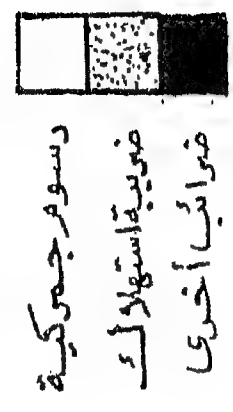 رسوم جمركية
ضريبة استهلاك
ضرائب أخرى